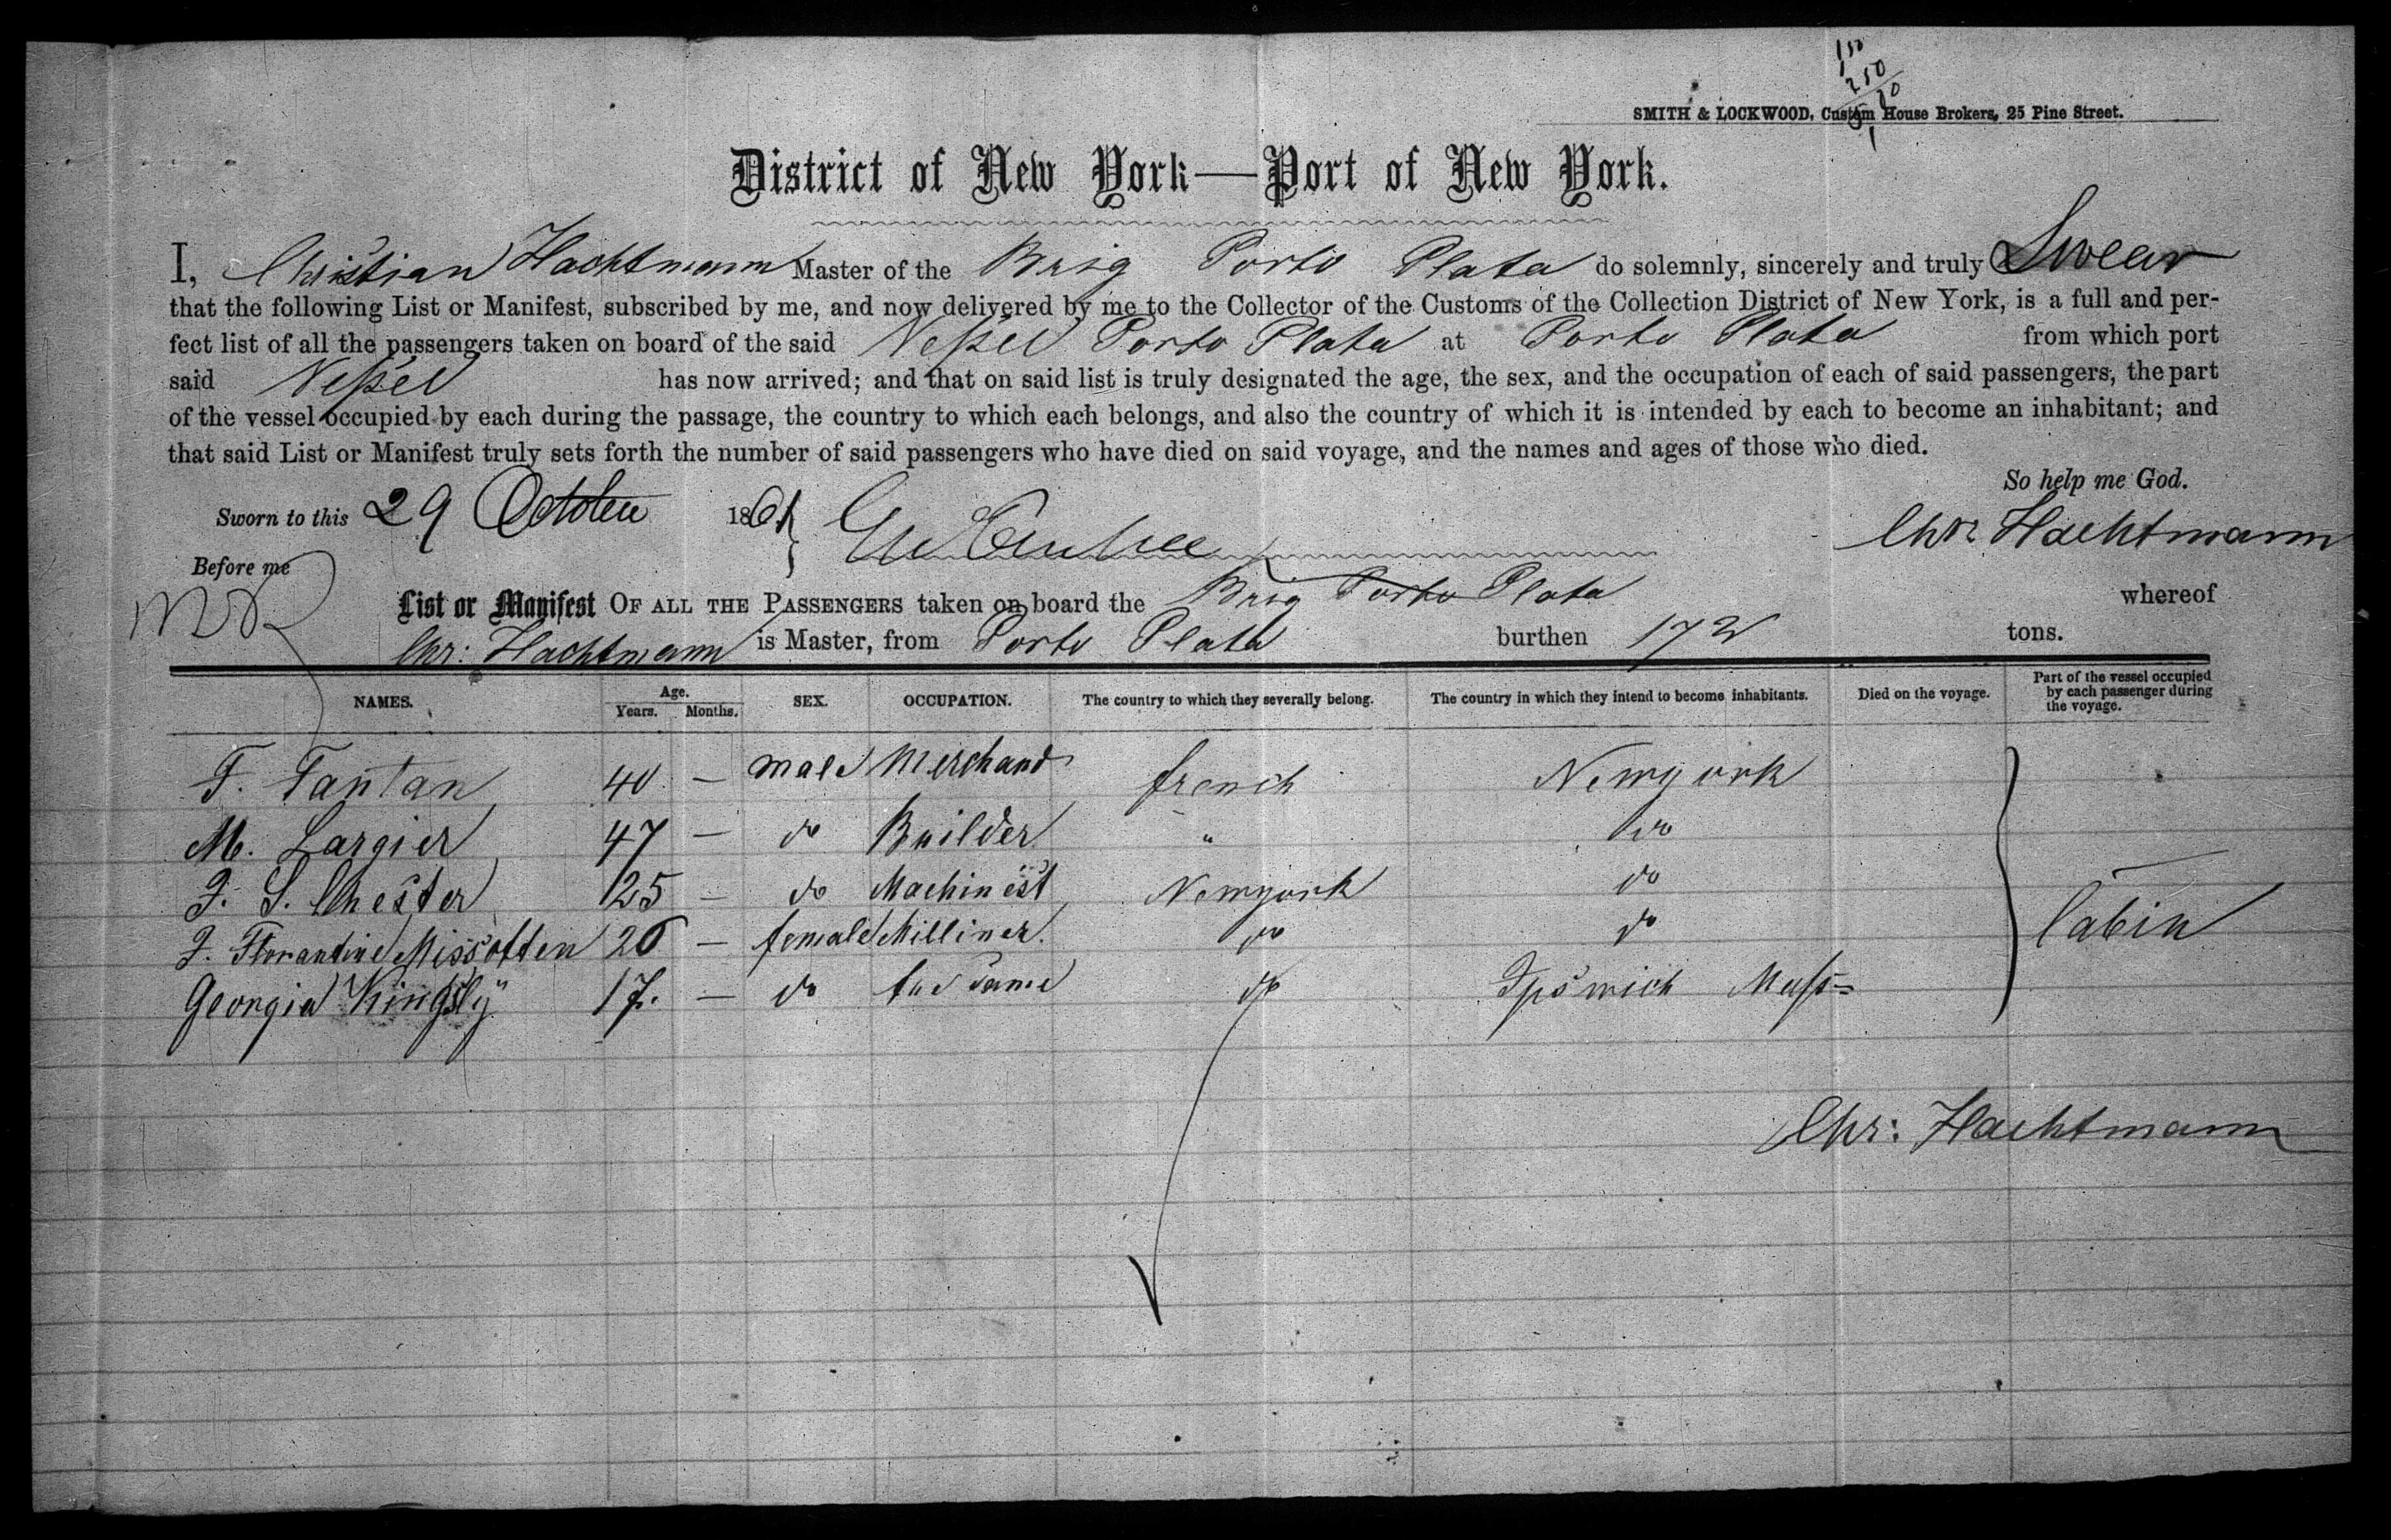 SMITH & LOCKWOOD, Custom House Brokers, 25 Pine Street.
District of New York—Port of New York.
I, Christian Hachtmann Master of the Brig Porto Plata do solemnly, sincerely and truly Swear
that the following List or Manifest, subscribed by me, and now delivered by me to the Collector of the Customs of the Collection District of New York, is a full and per-
fect list of all the passengers taken on board of the said Vessel Porto Plata at Porto Plata from which port
said Vessel has now arrived; and that on said list is truly designated the age, the sex, and the occupation of each of said passengers, the part
of the vessel occupied by each during the passage, the country to which each belongs, and also the country of which it is intended by each to become an inhabitant; and
that said List or Manifest truly sets forth the number of said passengers who have died on said voyage, and the names and ages of those who died.
So help me God.
Sworn to this 29 October 1861 Chr: Hachtmann
Before me
List or Manifest OF ALL THE PASSENGERS taken on board the Brig Porto Plata whereof
Chr: Hachtmann is Master, from Porto Plata burthen 172 tons.
NAMES. Age. Years. Months. SEX. OCCUPATION. The country to which they severally belong. The country in which they intend to become inhabitants. Died on the voyage. Part of the vessel occupied by each passenger during the voyage.
F. Fantan 40 — male Merchand french Newyork
M. Largier 47 — do Builder " do
J. S. Chester 25 — do Machinest Newyork do
J. Florantine Missotten 26 — female Milliner. do do Cabin
Georgia Kingsly 17. — do the same do Ipswich Mass=
Chr: Hachtmann